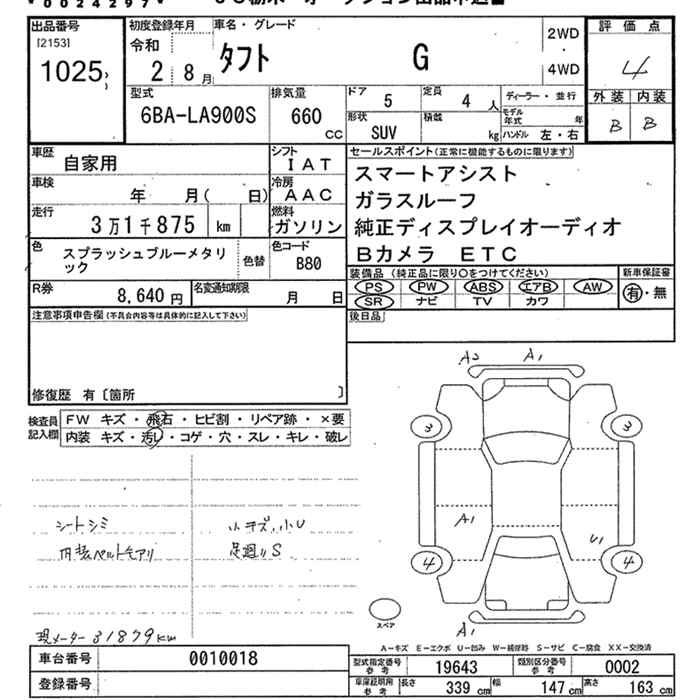 *0024297*
出品番号
[2153]
1025
初度登録年月
令和
2 8月
車名・グレード
タフト G
2WD
4WD
評価点
4
外装 内装
B B
型式
6BA-LA900S
排気量
660
CC
ドア
5
定員
4 人
ディーラー・並行
形状
SUV
積載
kg
モデル年式
年
ハンドル 左・右
車歴
自家用
シフト
IAT
車検
年 月( 日)
冷房
AAC
走行
3万1千875 km
燃料
ガソリン
色
スプラッシュブルーメタリ
ック
色替
色コード
B80
R券
8,640 円
名変通知期限
月 日
セールスポイント(正常に機能するものに限ります)
スマートアシスト
ガラスルーフ
純正ディスプレイオーディオ
Bカメラ ETC
装備品 (純正品に限り○をつけてください)
新車保証書
PS PW ABS エアB AW
有・無
SR ナビ TV カワ
後日品
注意事項申告欄 (不具合内容等は具体的に記入して下さい)
修復歴 有〔箇所 〕
検査員
記入欄
FW キズ・飛石・ヒビ割・リペア跡・×要
内装 キズ・汚レ・コゲ・穴・スレ・キレ・破レ
シートシミ
小キズ,小U
足廻りS
現メーター31879km
A2 A1
3 3
A1
U1
4 4
A1
スペア
A-キズ E-エクボ U-凹み W-補修跡 S-サビ C-腐食 XX-交換済
車台番号
0010018
登録番号
型式指定番号
参考
19643
類別区分番号
参考
0002
車庫証明用
参考
長さ
339 cm
幅
147 cm
高さ
163 cm